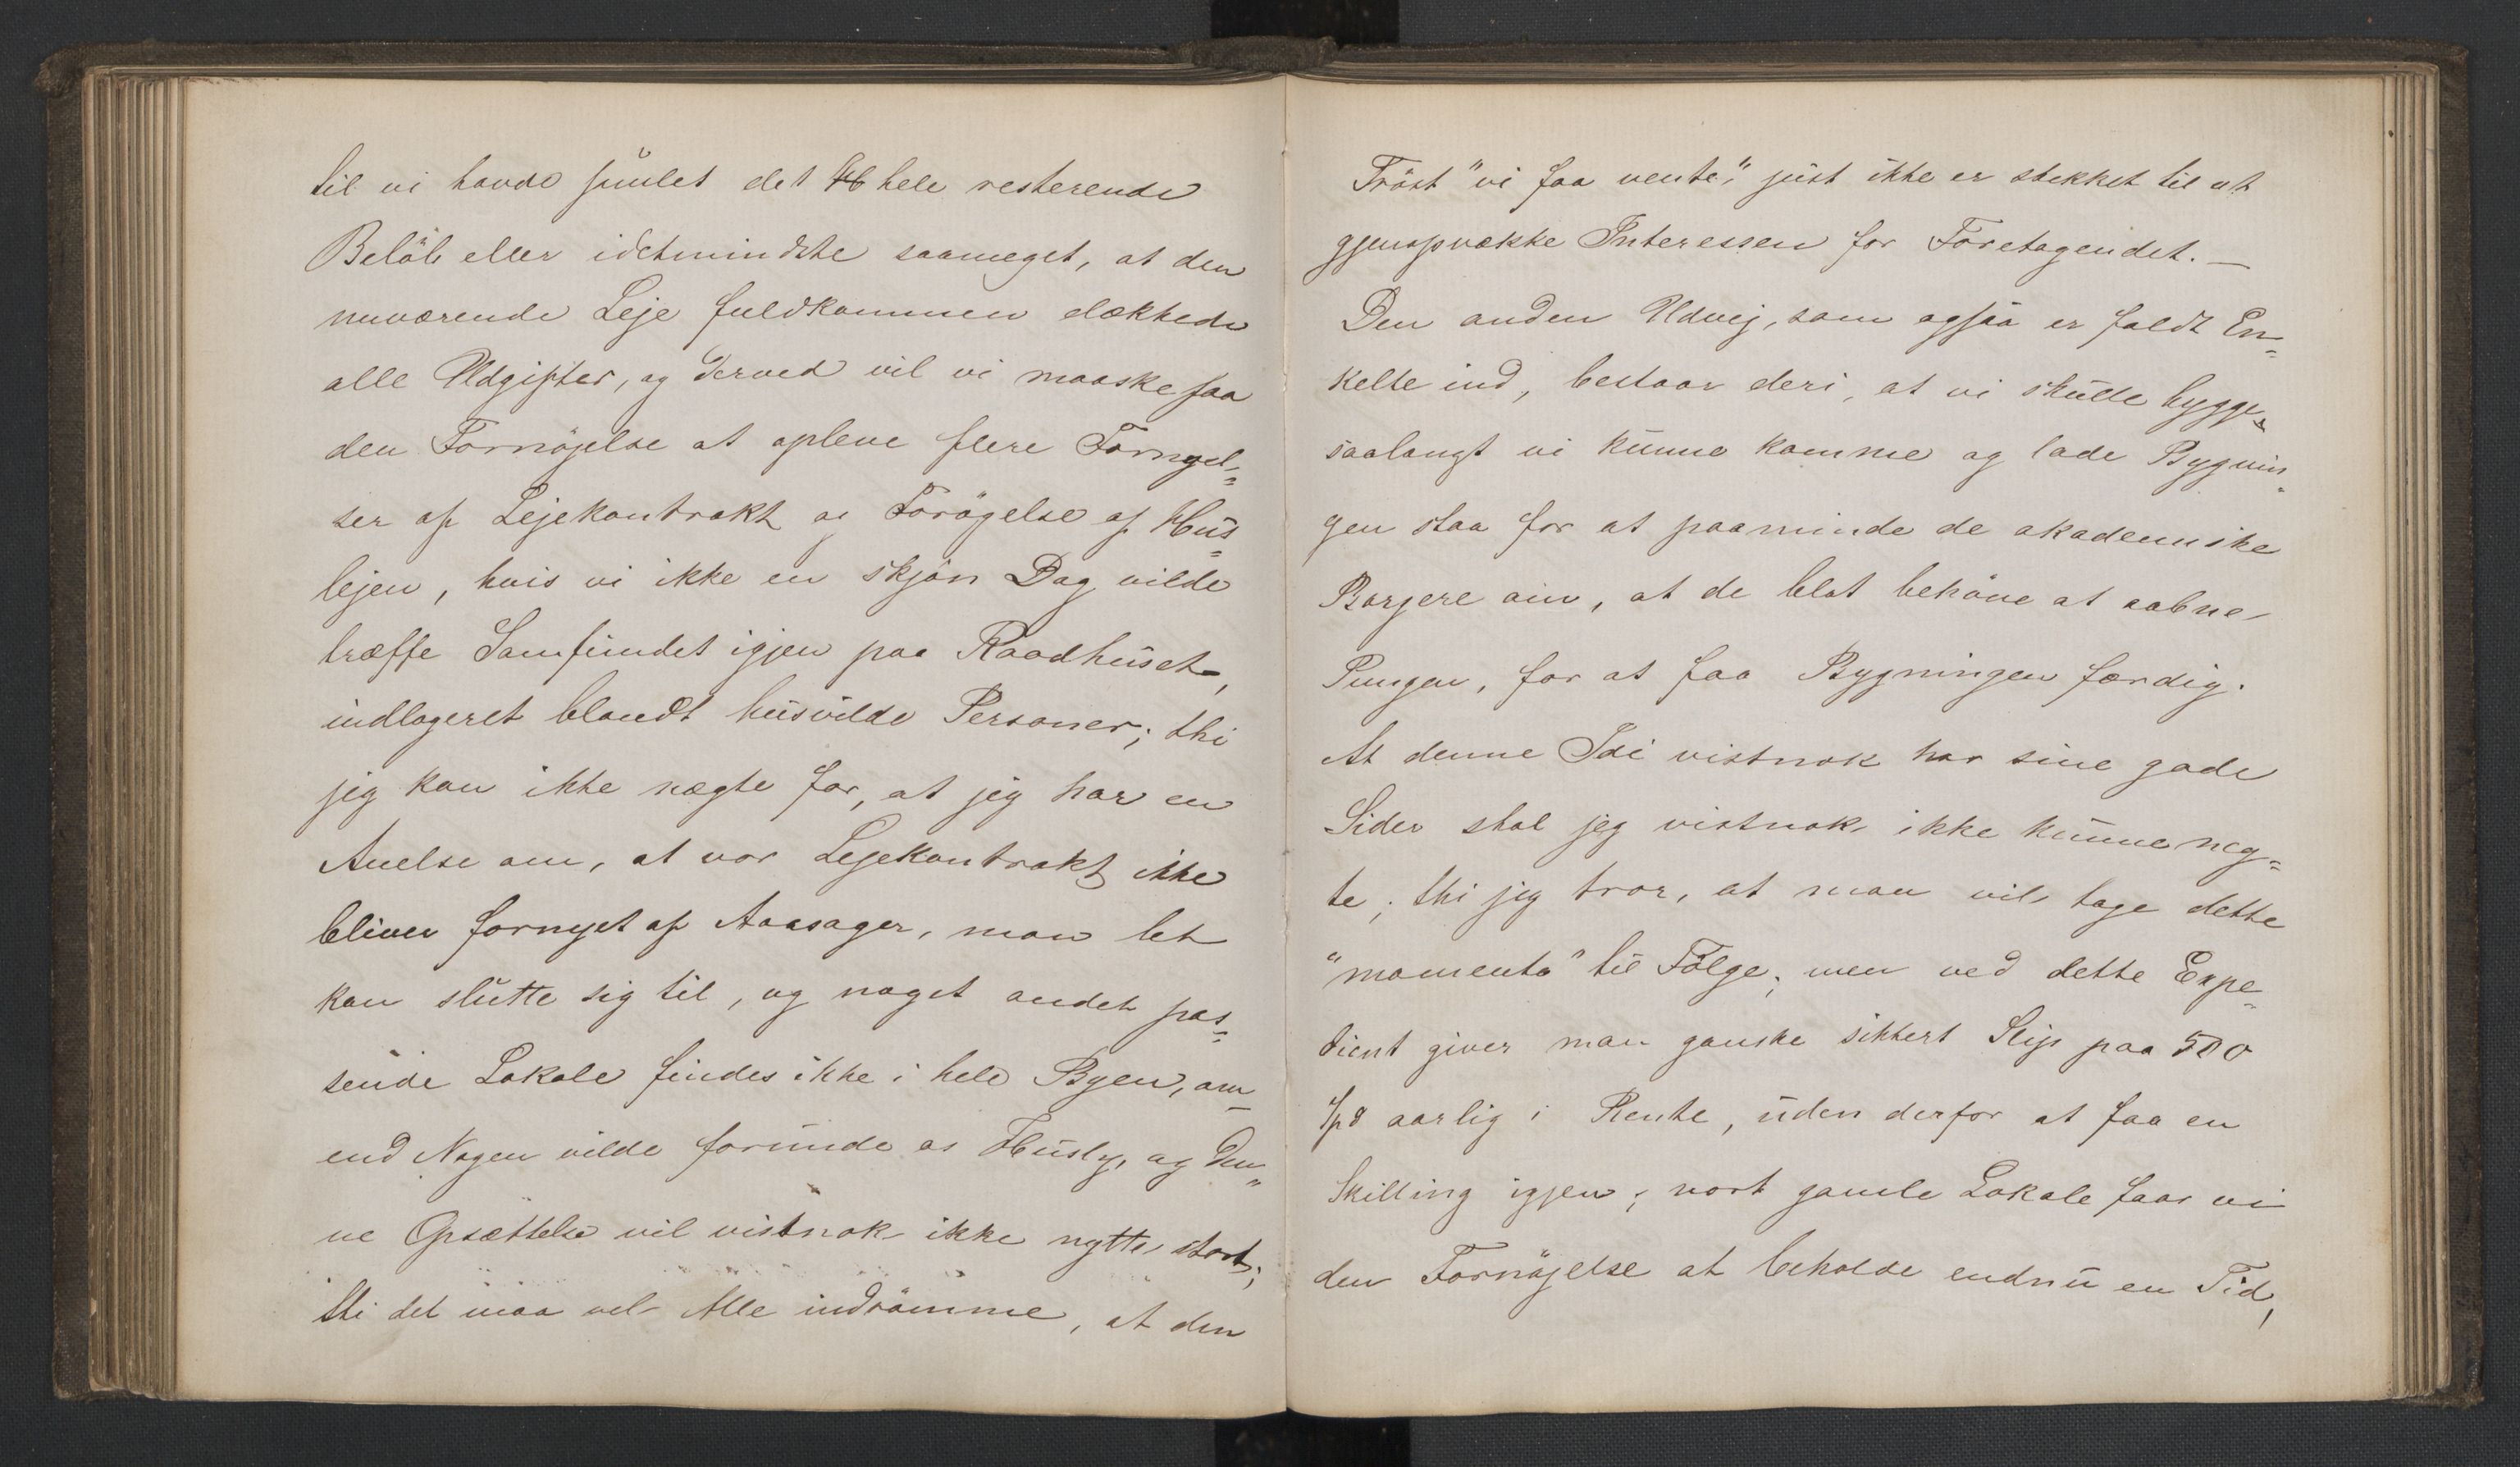 til vi havde samlet det hele resterende
Beløb eller idetmindste saameget, at den
nuværende Leje fuldkommen dækkede
alle Udgifter, og derved vil vi maaske faa
den Fornöjelse at opleve flere Fornyel-
ser af Lejekontrakt og Forögelse af Hus-
lejen, hvis vi ikke en skjön Dag vilde
træffe Samfundet igjen paa Raadhuset,
indlogeret blandt husvilde Personer; thi
jeg kan ikke nægte for, at jeg har en
Anelse om, at vor Lejekontrakt ikke
bliver fornyet af Aarsager, man let
kan slutte sig til, og noget andet pas-
sende Lokale findes ikke i hele Byen, om
end Nogen vilde forunde os Husly, og Den-
ne Opsættelse vil vistnok ikke nytte stort;
thi det maa vel Alle indrömme, at den
Tröst "vi faa vente", just ikke er skikket til at
gjenopvække Interessen for Foretagendet. —
Den anden Udvej, som ogsaa er faldt En-
kelte ind, bestaar deri, at vi skulle bygge
saalangt vi kunne komme og lade Bygnin-
gen staa for at paaminde de akademiske
Borgere om, at de blot behöve at aabne
Pungen, for at faa Bygningen færdig.
At denne Idé vistnok har sine gode
Sider skal jeg vistnok ikke kunne neg-
te; thi jeg tror, at man vil tage dette
"momento" til Fölge; men ved dette Expe-
dient giver man ganske sikkert Slip paa 500
Spd aarlig i Rente, uden derfor at faa en
Skilling igjen; vort gamle Lokale faar vi
den Fornöjelse at beholde endnu en Tid,